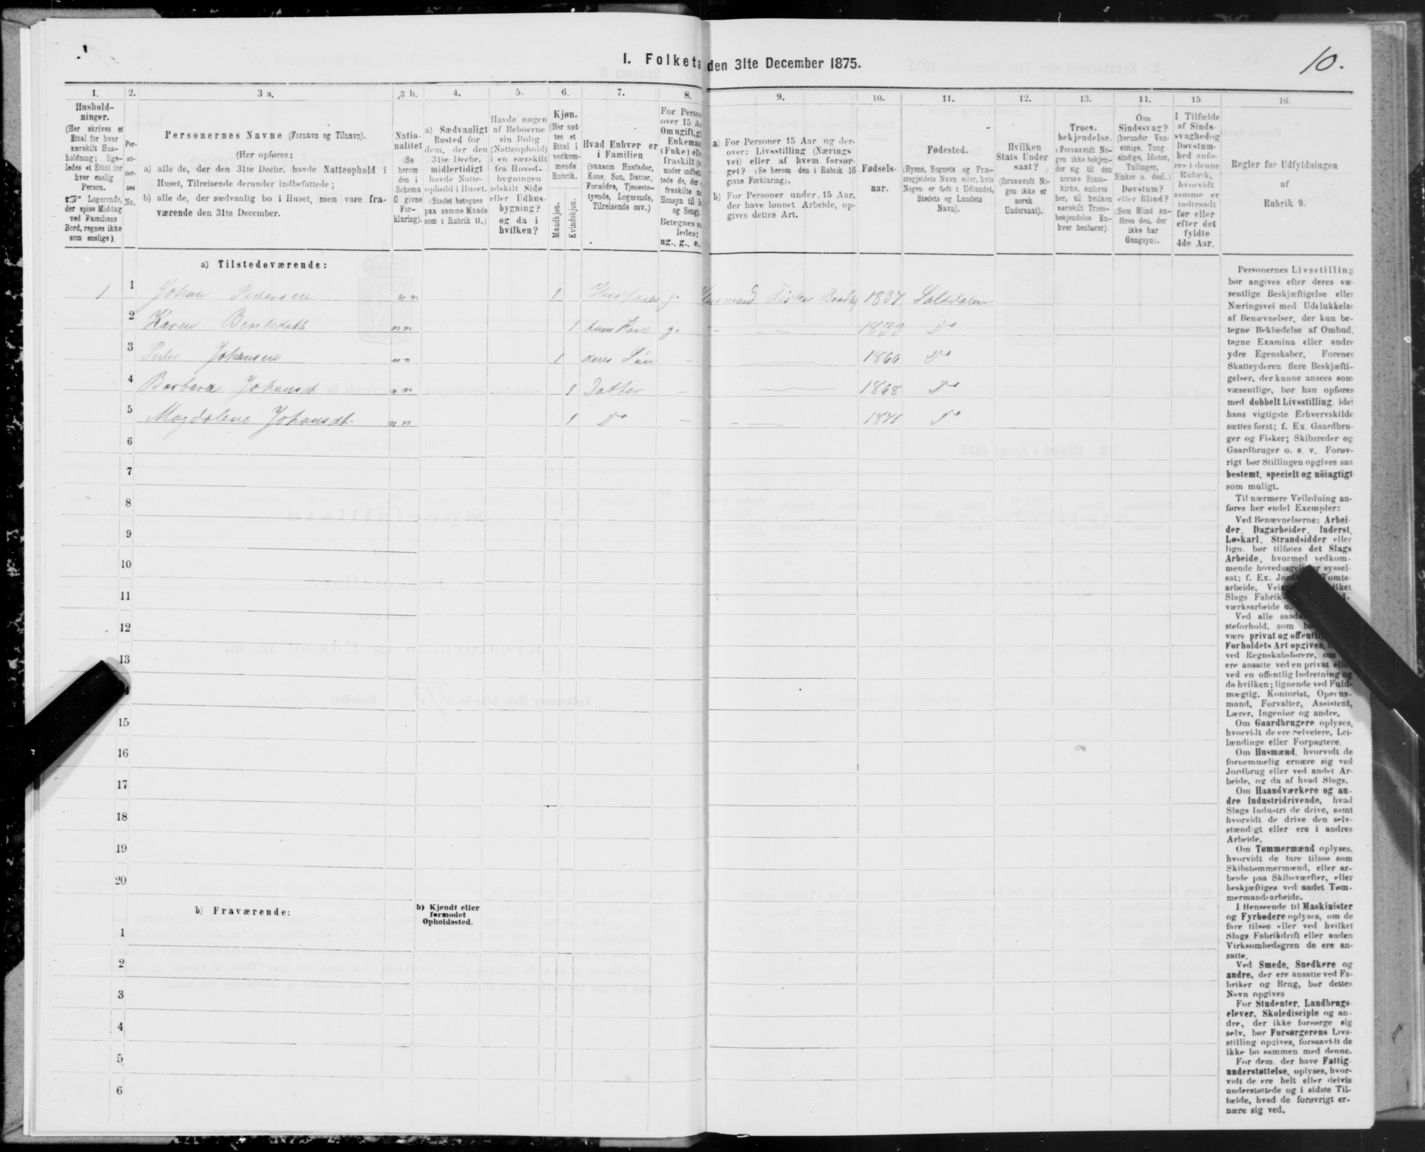 I. Folketæ
den 31te December 1875.
10.
1.
Hushold-
ninger.
(Her skrives et
Ettal for hver
særskilt Hus-
holdning; lige-
ledes et Ettal for
hver enslig
Person.
☞ Logerende,
der spise Middag
ved Familiens
Bord, regnes ikke
som enslige).
2.
Per-
so-
ner-
nes
No.
3 a.
Personernes Navne (Fornavn og Tilnavn).
(Her opføres:
a) alle de, der den 31te Decbr. havde Natteophold i
Huset, Tilreisende derunder indbefattede;
b) alle de, der sædvanlig bo i Huset, men vare fra-
værende den 31te December.
3 b.
Natio-
nalitet
(Se
herom
den i
Schema
C givne
For-
klaring).
4.
a) Sædvanligt
Bosted for
dem, der den
31te Decbr.
midlertidigt
havde Natte-
ophold i Huset.
(Stedet betegnes
paa samme Maade
som i Rubrik 11.)
5.
Havde nogen
af Beboerne
sin Bolig
(Natteophold)
i en særskilt
fra Hoved-
bygningen
adskilt Side
eller Udhus-
bygning?
og da i
hvilken?
6.
Kjøn.
(Her sæt-
tes et
Ettal i
vedkom-
mende
Rubrik.
Mandkjøn.
Kvindekjøn.
7.
Hvad Enhver er
i Familien
(saasom Husfader,
Kone, Søn, Datter,
Forældre, Tjeneste-
tyende, Logerende,
Tilreisende osv.)
8.
9.
a) For Personer 15 Aar og der-
over: Livsstilling (Nærings
vei) eller af hvem forsør-
get? (Se herom den i Rubrik 16
givne Forklaring).
b) For Personer under 15 Aar,
der have lønnet Arbeide, op-
gives dettes Art.
10.
Fødsels-
aar.
11.
Fødested.
(Byens, Sognets og Præ-
stegjeldets Navn eller, hvis
Nogen er født i Udlandet,
Stedets og Landets
Navn).
12.
Hvilken
Stats Under
saat?
(forsaavidt No-
gen ikke er
norsk
Undersaat).
13.
Troes-
bekjendelse.
(Forsaavidt No-
gen ikke bekjen-
der sig til den
norske Stats-
kirke, anføres
her, til hvilken
særskilt Troes-
bekjendelse En-
hver henhører).
14.
Om
Sindssvag?
(herunder Van-
vittige, Tung
sindige, Idioter,
Tullinger,
Sinker a. desl.).
Døvstum?
eller Blind?
(Som Blind an-
føres den, der
ikke har
Gangsyn).
15
I Tilfælde
af Sinds-
svaghed og
Døvstum-
hed anfø-
res i denne
Rubrik,
hvorvidt
samme er
indtraadt
før eller
efter det
fyldte
4de Aar.
16.
Regler for Udfyldningen
af
Rubrik 9.
a) Tilstedeværende:
1 1 Johan Pedersen nn 1 Husfader g. Husmand Fisker 1837 Saltdalen
2 Karen Bentsdatt nn 1 hans Kone g. Do
3 Johansen nn 1 deres Søn Do
4 Barbara Johansdt nn 1 Datter 1868 Do
5 Magdalene Johansdt nn 1 Do Do
6
7
8
9
10
11
12
13
15
16
17
18
19
20
b) Fraværende:
b) Kjendt eller
formodet
Opholdssted.
1
2
3
4
5
6
Personernes Livsstilling
bør angives efter deres væ-
sentlige Beskjæftigelse eller
Næringsvei med Udelukkelse
af Benævnelser, der kun be-
tegne Beklædelse af Ombud,
tagne Examina eller andre
ydre Egenskaber. Forener
Skatteyderen flere Beskjæfti-
gelser, der kunne ansees som
væsentlige, bør han opføres
med dobbelt Livsstilling, idet
hans vigtigste Erhvervskilde
sættes først; f. Ex. Gaardbru-
ger og Fisker; Skibsreder og
Gaardbruger o. s. v. Forøv-
rigt bør Stillingen opgives saa
bestemt, specielt og nöiagtigt
som muligt.
Til nærmere Veiledning an-
føres her endel Exempler:
Ved Benævnelserne: Arbei-
der, Dagarbeider, Inderst,
Løskarl, Strandsidder eller
lign. bør tilføies det Slags
Arbeide, hvormed vedkom-
mende hovedsagelig er syssel-
sat; f. Ex.
Om Gaardbrugere oplyses,
hvorvidt de ere Selveiere, Lei-
lændinge eller Forpagtere.
Om Husmænd, hvorvidt de
fornemmelig ernære sig ved
Jordbrug eller ved andet Ar-
beide, og da af hvad Slags.
Om Haandværkere og an-
dre Industridrivende, hvad
Slags Industri de drive, samt
hvorvidt de drive den selv-
stændigt eller ere i andres
Arbeide.
Om Tømmermænd oplyses,
hvorvidt de fare tilsøs som
Skibstømmermænd, eller ar-
beide paa Skibsværfter, eller
beskjæftiges ved andet Tøm-
mermandsarbeide.
I Henseende til Maskinister
og Fyrbødere oplyses, om de
fare tilsøs eller ved hvilket
Slags Fabrikdrift eller anden
Virksomhedsgren de ere an-
satte.
Ved Smede, Snedkere og
andre, der ere ansatte ved Fa-
briker og Brug, bør dettes
Navn opgives
For Studenter, Landbrugs
elever, Skoledisciple og an-
dre, der ikke forsørge sig
selv, bør Forsørgerens Livs-
stilling opgives, forsaavidt de
ikke bo sammen med denne.
For dem, der have Fattig
understøttelse, oplyses, hvor-
vidt de ere helt eller delvis
understøttede og i sidste Til-
fælde, hvad de forøvrigt er-
nære sig ved.